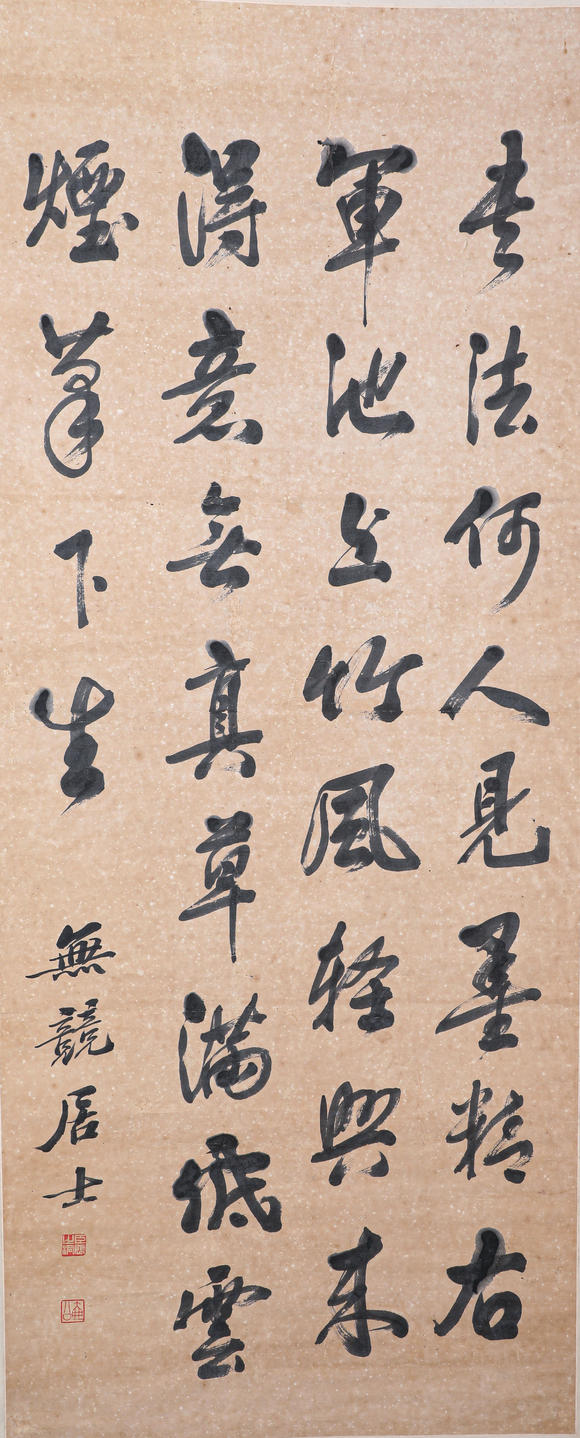 書法何人見墨精右
軍池上竹風軽興来
得意無真草滿紙雲
煙筆下生
無競居士